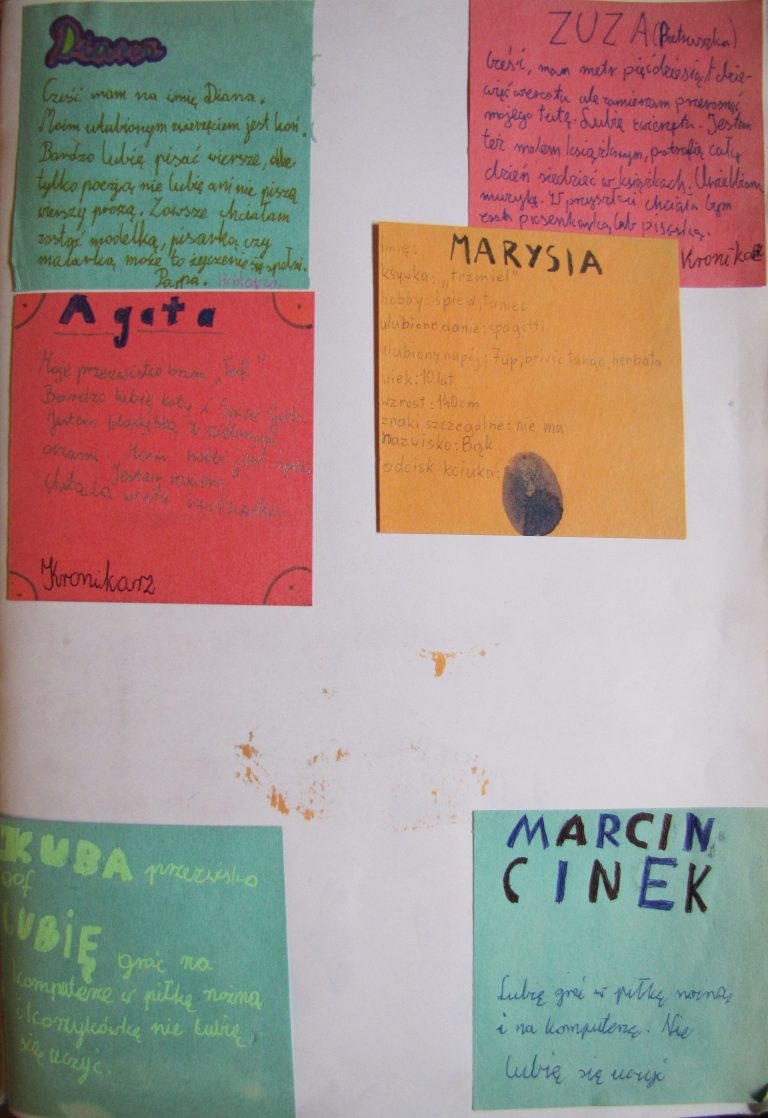 Diana
Cześć mam na imię Diana.
Moim ulubionym zwierzęciem jest koń.
Bardzo lubię pisać wiersze, ale
tylko poezją nie lubię ani nie piszę
wierszy prozą. Zawsze chciałam
zostać modelką, pisarką czy
malarką może to życzenie się spełni.
Pa,pa.
ZUZA (Pietruszka)
Cześć, mam metr pięćdziesiąt dzie-
więć wzrostu ale zamierzam przerosnąć
mojego tatę. Lubię zwierzęta. Jestem
też molem książkowym, potrafię cały
dzień siedzieć w książkach. Uwielbiam
muzykę. W przyszłości chciała bym
zostać piosenkarką lub pisarką.
Kronika
MARYSIA
imię:
ksywka: „trzmiel"
hobby: śpiew, taniec
ulubione danie: spagetti
ulubiony napój: 7up, herbata
wiek: 10 lat
wzrost: 140cm
znaki szczególne: nie ma
nazwisko: Bąk
odcisk kciuka:
Agata
Moje przezwisko brzmi
Bardzo lubię koty i
Jestem z zielonymi
oczami. Moim hobby jest
Jestem
Kronikarz
KUBA przezwisko
gof
LUBIĘ grać na
komputerze w piłkę nożną
i koszykówkę nie lubię
się uczyć.
MARCIN
CINEK
Lubię grać w piłkę nożną
i na komputerze. Nie
lubię się uczyć